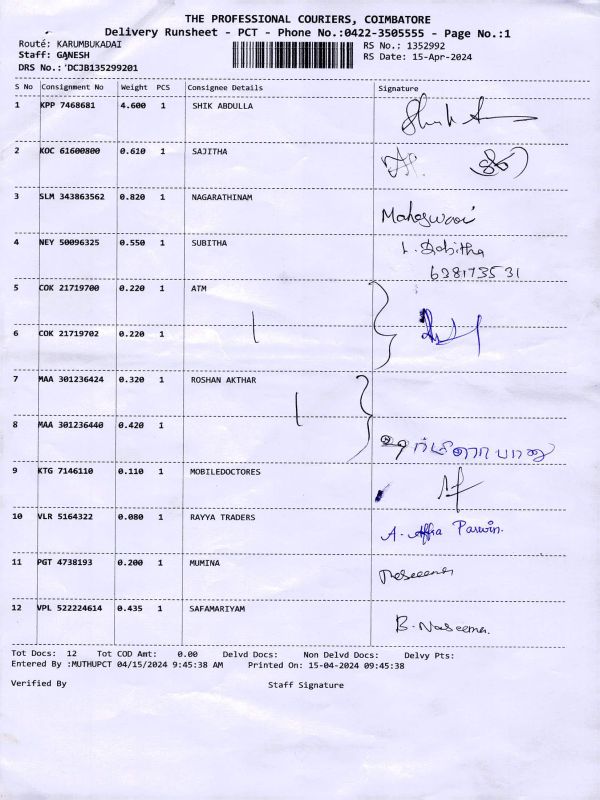 THE PROFESSIONAL COURIERS, COIMBATORE
Delivery Runsheet - PCT - Phone No.:0422-3505555 - Page No.:1
Route: KARUMBUKADAI RS No.: 1352992
Staff: GANESH RS Date: 15-Apr-2024
DRS No.: DCJB135299201
S No Consignment No Weight PCS Consignee Details Signature
1 KPP 7468681 4.600 1 SHIK ABDULLA
2 KOC 61600800 0.610 1 SAJITHA
3 SLM 343863562 0.820 1 NAGARATHINAM Maheswari
4 NEY 50096325 0.550 1 SUBITHA L. Subitha
628173531
5 COK 21719700 0.220 1 ATM
6 COK 21719702 0.220 1
7 MAA 301236424 0.320 1 ROSHAN AKTHAR
8 MAA 301236440 0.420 1
9 KTG 7146110 0.110 1 MOBILEDOCTORES
10 VLR 5164322 0.080 1 RAYYA TRADERS A. Affra Parwin.
11 PGT 4738193 0.200 1 MUMINA
12 VPL 522224614 0.435 1 SAFAMARIYAM B. Naseema.
Tot Docs: 12 Tot COD Amt: 0.00 Delvd Docs: Non Delvd Docs: Delvy Pts:
Entered By :MUTHUPCT 04/15/2024 9:45:38 AM Printed On: 15-04-2024 09:45:38
Verified By Staff Signature